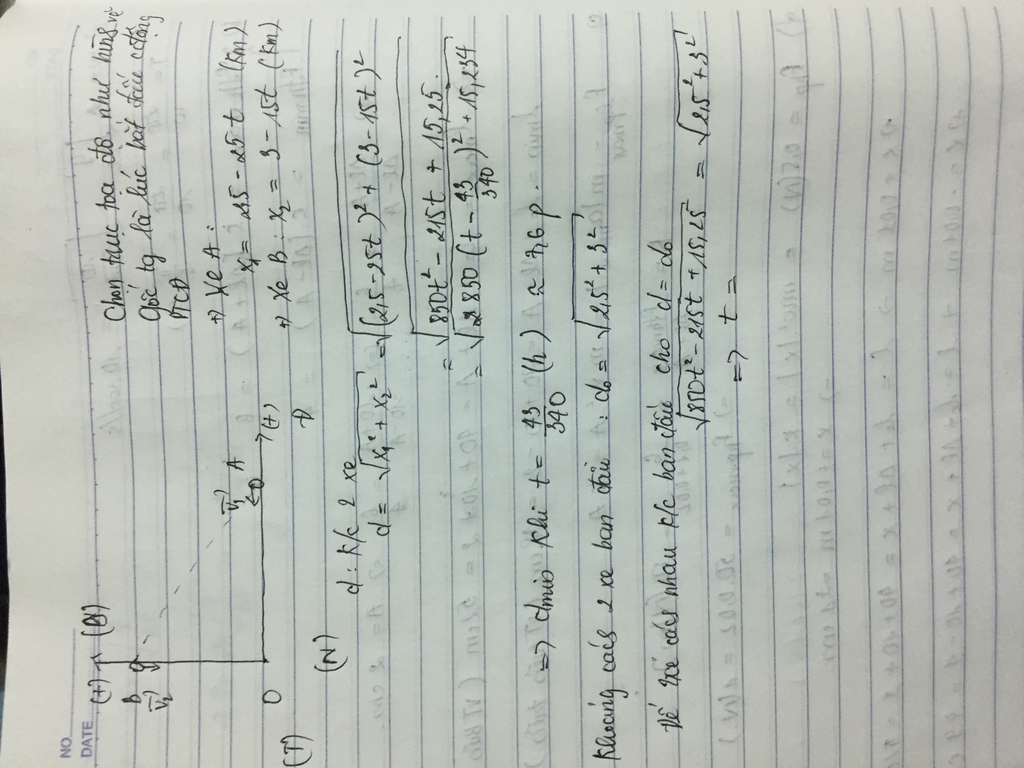 NO.
DATE
(+)
(B)
B
v₂
v₁
A
O
(+)
Đ
(T)
(N)
Chọn trục tọa độ như hình vẽ
Gốc tg là lúc bắt đầu cđộng
PTCĐ
+) Xe A:
x₁ = 2,5 - 25t (km)
+) Xe B: x₂ = 3 - 15t (km)
d: k/c 2 xe
d = √(x₁² + x₂²) = √((2,5-25t)² + (3-15t)²)
= √(850t² - 215t + 15,25)
= √(850(t - 43/340)² + 15,234)
=> dmin khi t = 43/340 (h) ≈ 7,6 p.
Khoảng cách 2 xe ban đầu: d₀ = √(2,5² + 3²)
Để 2 xe cách nhau k/c ban đầu cho d = d₀
√(850t² - 215t + 15,25) = √(2,5² + 3²)
=> t =